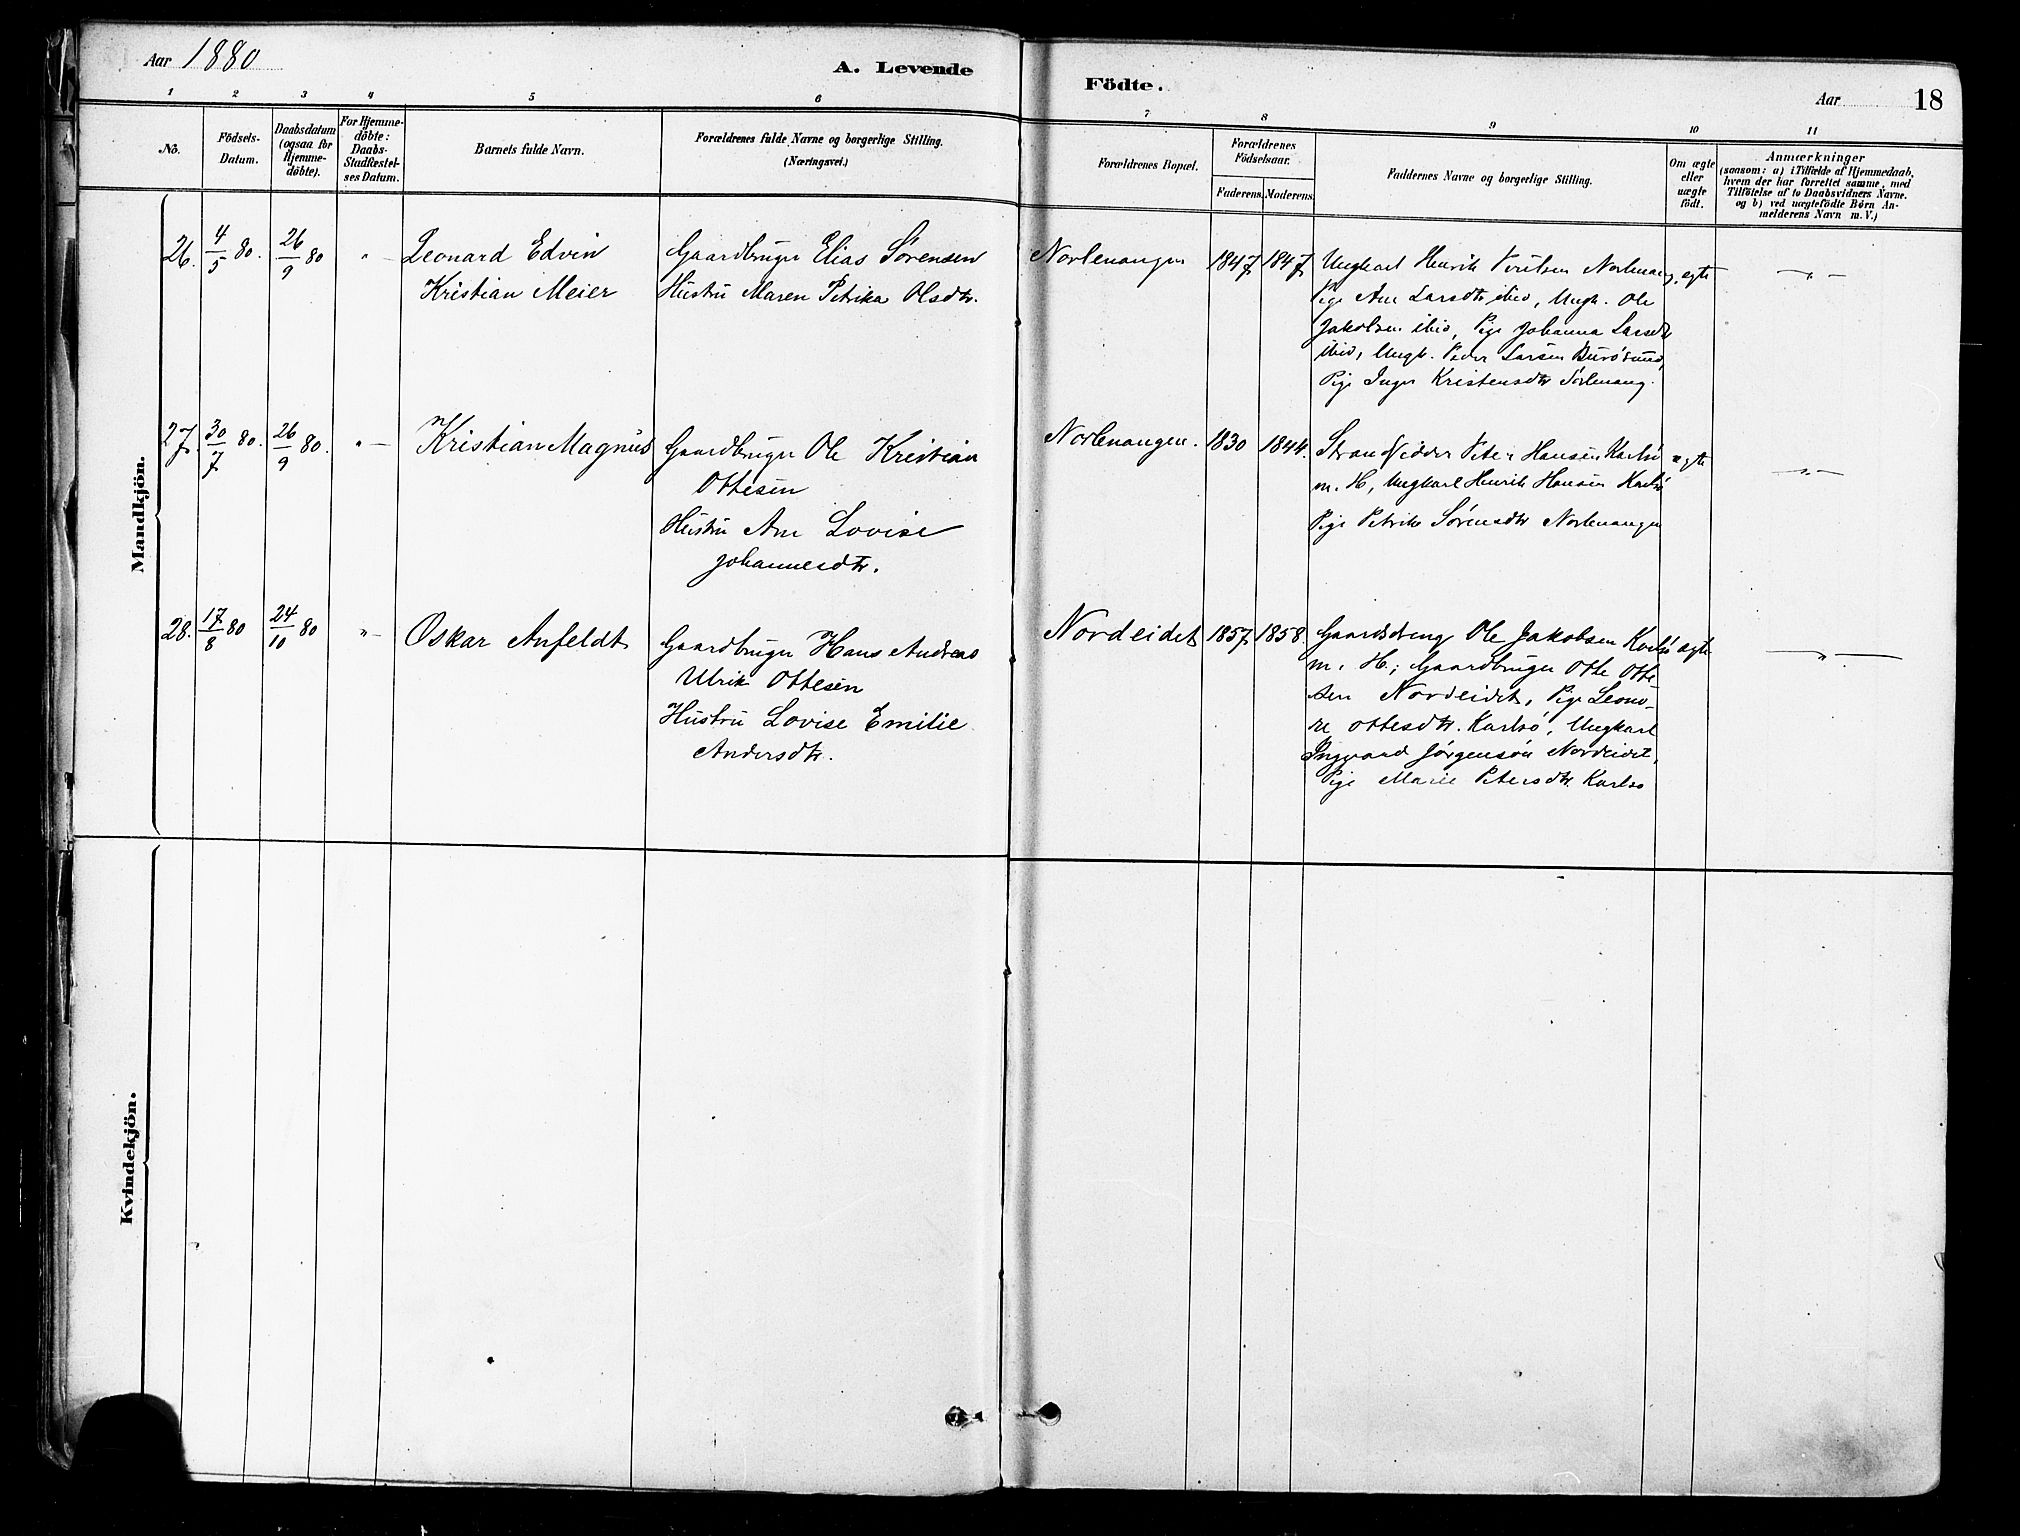 Aar 1880
A. Levende
Födte.
Aar
18
1 2 3 4 5 6 7 8 9 10 11
No.
Födsels-
Datum.
Daabsdatum
(ogsaa for
Hjemme-
döbte).
For Hjemme-
döbte:
Daabs-
Stadfæstel-
ses Datum.
Barnets fulde Navn.
Forældrenes fulde Navne og borgerlige Stilling.
(Næringsvei.)
Forældrenes Bopæl.
Forældrenes
Födselsaar.
Faderens. Moderens.
Faddernes Navne og borgerlige Stilling.
Om ægte
eller
uægte
födt.
Anmærkninger
(saasom: a) i Tilfælde af Hjemmedaab,
hvem der har forrettet samme, med
Tilföielse af to Daabsvidners Navne.
og b) ved uægtefödte Börn An-
melderens Navn m. V.)
Mandkjön.
26. 4/5 80. 26/9 80 "-
Leonard Edvin
Kristian Meier
Gaardbruger Elias Sørensen
Hustru Maren Petrika Olsdtr.
Norlenangen
1847 1847
Ungkarl Henrik Norlenang,
Pige Ane Larsdtr ibid, Ungk. Ole
Jakobsen ibid, Pige Johanna Larsdtr
ibid, Ungk. Peder Larsen Burösund,
Pige Inger Kristensdtr Sörlenang.
ægte
-"-
27. 30/7 80. 26/9 80. "-
Kristian Magnus
Gaardbruger Ole Kristian
Ottesen
Hustru Ane Lovise
Johannesdtr.
Norlenangen.
1830 1844.
Strandsidder Peter Hansen Karlsö
m. H, Ungkarl Henrik Hansen Karlsö
Pige Petrike Sörensdtr Norlenangen
ægte
-"-
28. 17/8 80 24/10 80 "-
Oskar Anfeldt
Gaardbruger Hans Andreas
Ulrik Ottesen
Hustru Lovise Emilie
Andersdtr.
Nordeidet
1857 1858.
Gaardsdreng Ole Jakobsen Karlsö
m. H.; Gaardbruger Otte Otte-
sen Nordeidet, Pige Leono-
re Ottesdtr. Karlsö, Ungkarl
Ingvard Jörgensön Nordeidet,
Pige Marie Petersdtr. Karlsö
ægte
-"-
Kvindekjön.